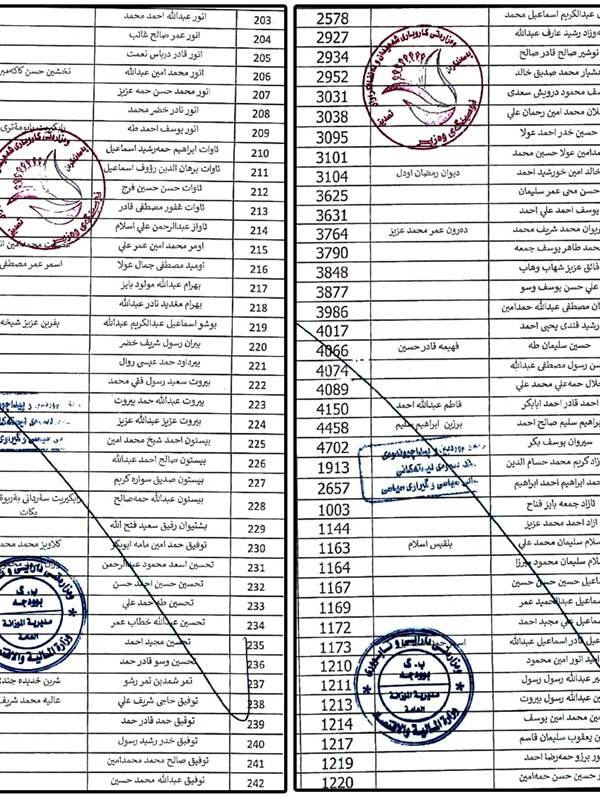 203 انور عبدالله احمد محمد
204 انور عمر صالح غائب
205 انور قادر درباس نعمت
206 انور محمد امين عبدالله نخشين حسن كاكەمين
207 انور محمد حسن حمه عزيز
208 انور نادر خضر محمد
209 انور يوسف احمد طه
210 ئاوات ابراهيم حمەرشيد اسماعيل
211 ئاوات برهان الدين رؤوف اسماعيل
212 ئاوات حسن حسين فرج
213 ئاوات غفور مصطفى قادر
214 ئاواز عبدالرحمن علي اسلام
215 اومر محمد امين عمر علي
216 اوميد مصطفى جمال عولا اسمر عمر مصطفى
217 بهرام عبدالله مولود بايز
218 بهرام مغديد نادر عبدالله
219 بوشو اسماعيل عبدالكريم عبدالله يفرين عزيز شيخه
220 بيران رسول شريف خضر
221 بيرداود حمد عيسى روال
222 بيروت سعيد رسول فقي محمد
223 بيروت عبدالله حمد بيروت
224 بيروت عزيز عبدالله عزيز
225 بيستون احمد شيخ محمد امين
226 بيستون صالح احمد عبدالله
227 بيستون صديق سواره كريم
228 بيستون عبدالله حمەصالح
بكات
229 پشتيوان رفيق سعيد فتح الله
230 توفيق حمد امين مامه ابوبكر كلاويز محمد
231 تحسين اسعد محمود عبدالرحمن
232 تحسين حسين احمد حسن
233 تحسين طه حمد علي
234 تحسين عبدالله خطاب عمر
235 تحسين مجيد احمد
236 تحسين وسو قادر حمد
237 تمر شمدين تمر رشو شرين خديده جندي
238 توفيق حاجي شريف علي عاليه محمد شريف
239 توفيق حمد قادر حمد
240 توفيق خدر رشيد رسول
241 توفيق صالح محمد محمدامين
242 توفيق عبدالله محمد حسين
2578 عبدالكريم اسماعيل محمد
2927 رشيد عارف عبدالله
2934 نوشير صالح قادر صالح
2952 محمد صديق خالد
3031 محمود درويش سعدى
3038 محمد امين رحمان علي
3095 حسين خدر احمد عولا
3101 محمدامين عولا حسين محمد
3104 خالد امين خورشيد احمد ديوان رمضان اودل
3625 حسن محى عمر سليمان
3631 يوسف احمد علي احمد
3764 محمد شريف محمد دەرون عمر محمد عزيز
3790 محمد طاهر يوسف جمعه
3848 فائق عزيز شهاب وهاب
3877 علي حسن يوسف وسو
3986 مصطفى عبدالله حمدامين
4017 رشيد فندى يحيى احمد
4066 حسين سليمان طه فهيمه قادر حسين
4074 حسن رسول مصطفى عبدالله
4089 حمەعلي محمد علي
4150 احمد قادر احمد ابابكر فاطم عبدالله احمد
4458 ابراهيم سليم صالح احمد برزين ابراهيم سليم
4702 سيروان يوسف بكر
1913 كريم محمد حسام الدين
2657 احمد ابراهيم احمد ابراهيم
1003 ئازاد جمعه بايز فتاح
1144 ازاد احمد محمد عزيز
1163 سليمان محمد علي بلقيس اسلام
1164 سليمان محمود ميرزا
1167 حسين حسن حسين
1169 عبدالحميد عمر
1172 علي مجيد احمد
1173 قادر اسماعيل عبدالله
1210 انور امين محمود
1211 عبدالله رسول رسول
1213 عبدالله رسول بيروت
1214 محمد امين يوسف
1217 يعقوب سليمان قاسم
1219 برزو حمەرضا احمد
1220 حسين حسن حمەامين
ب.گ
بوودجه
مديرية الموازنة
العامة
وزارة المالية والاقتصاد